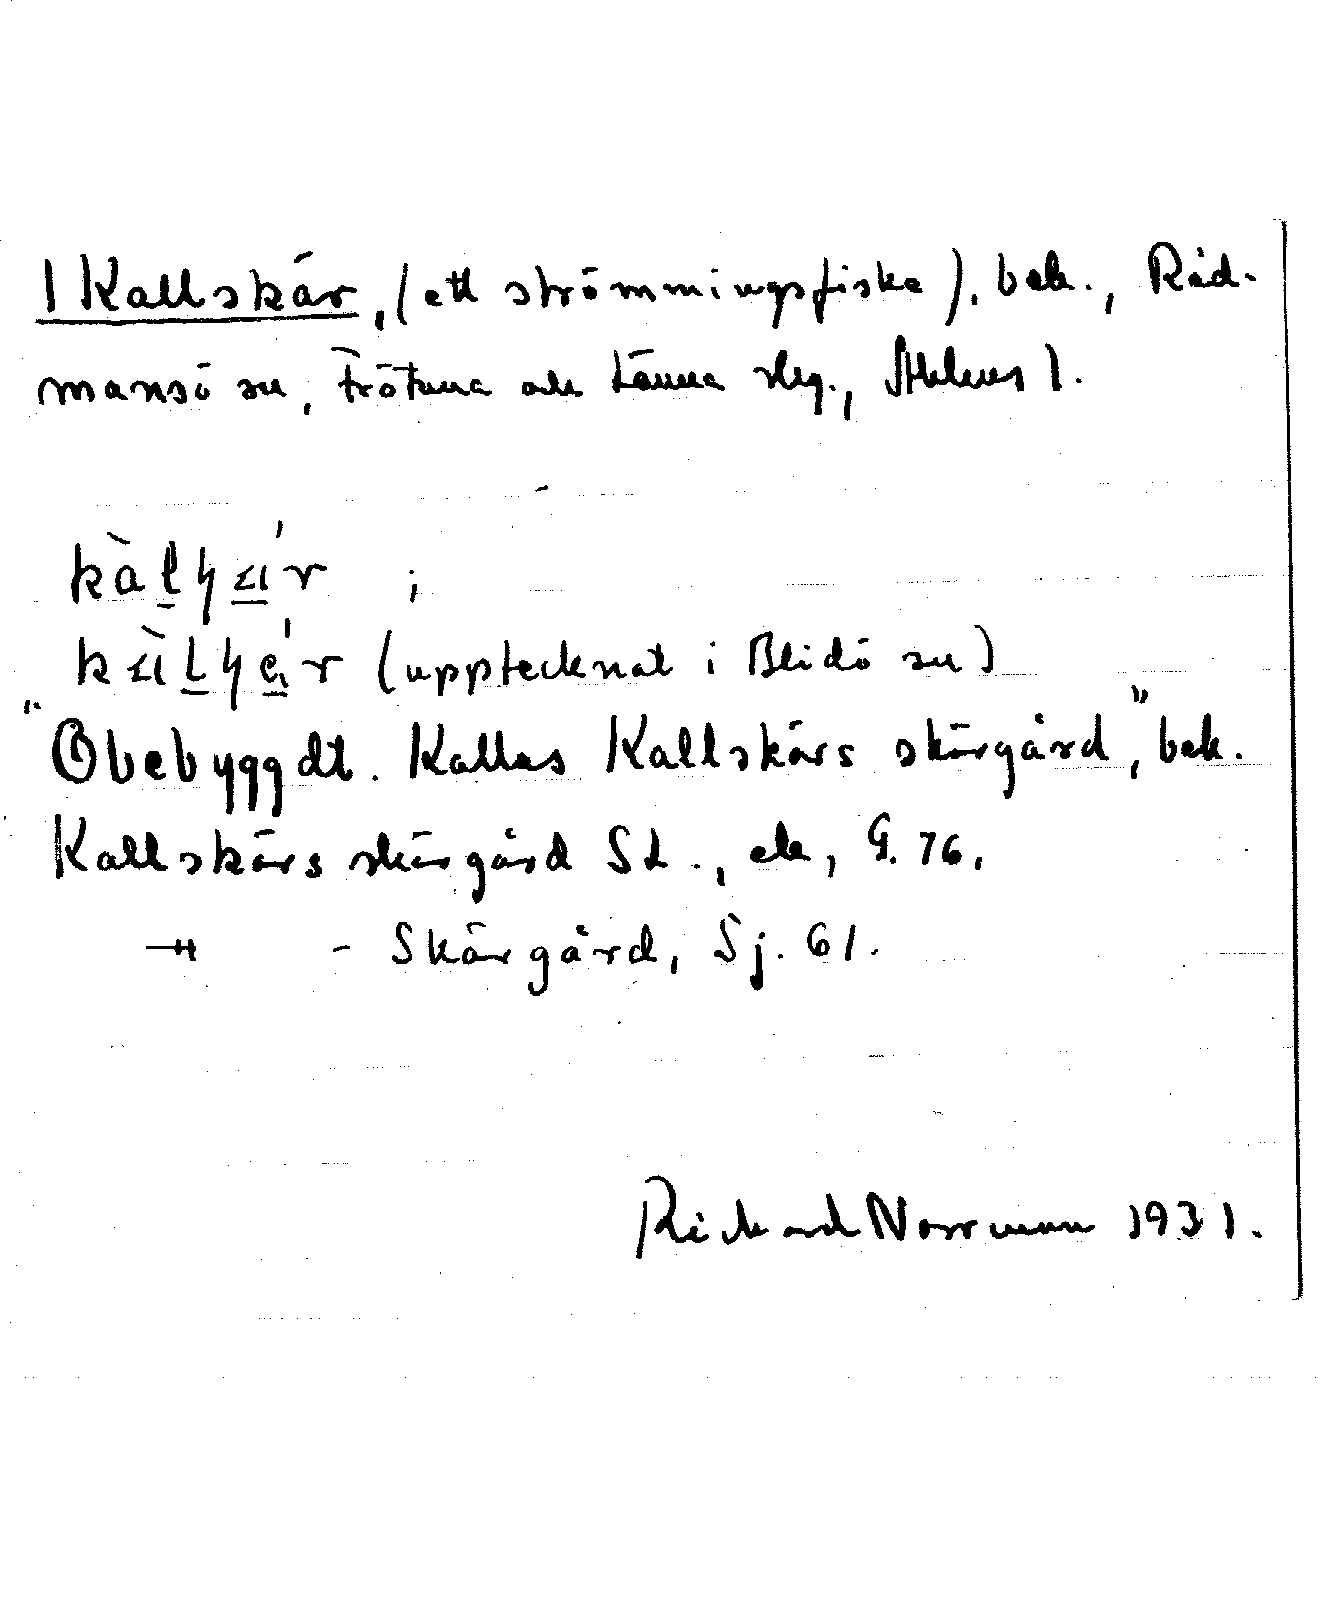 1 Kallskär, (ett strömmingsfiske), bek., Råd-
mansö sn, Frötuna och Länna skg., Sthlms l.
(upptecknat i Blidö sn)
"Obebyggdt. Kallas Kallskärs skärgård", bek.
Kallskärs skärgård St., ek, G. 76.
- Skärgård, Sj. 61.
Rickard Norrman 1931.